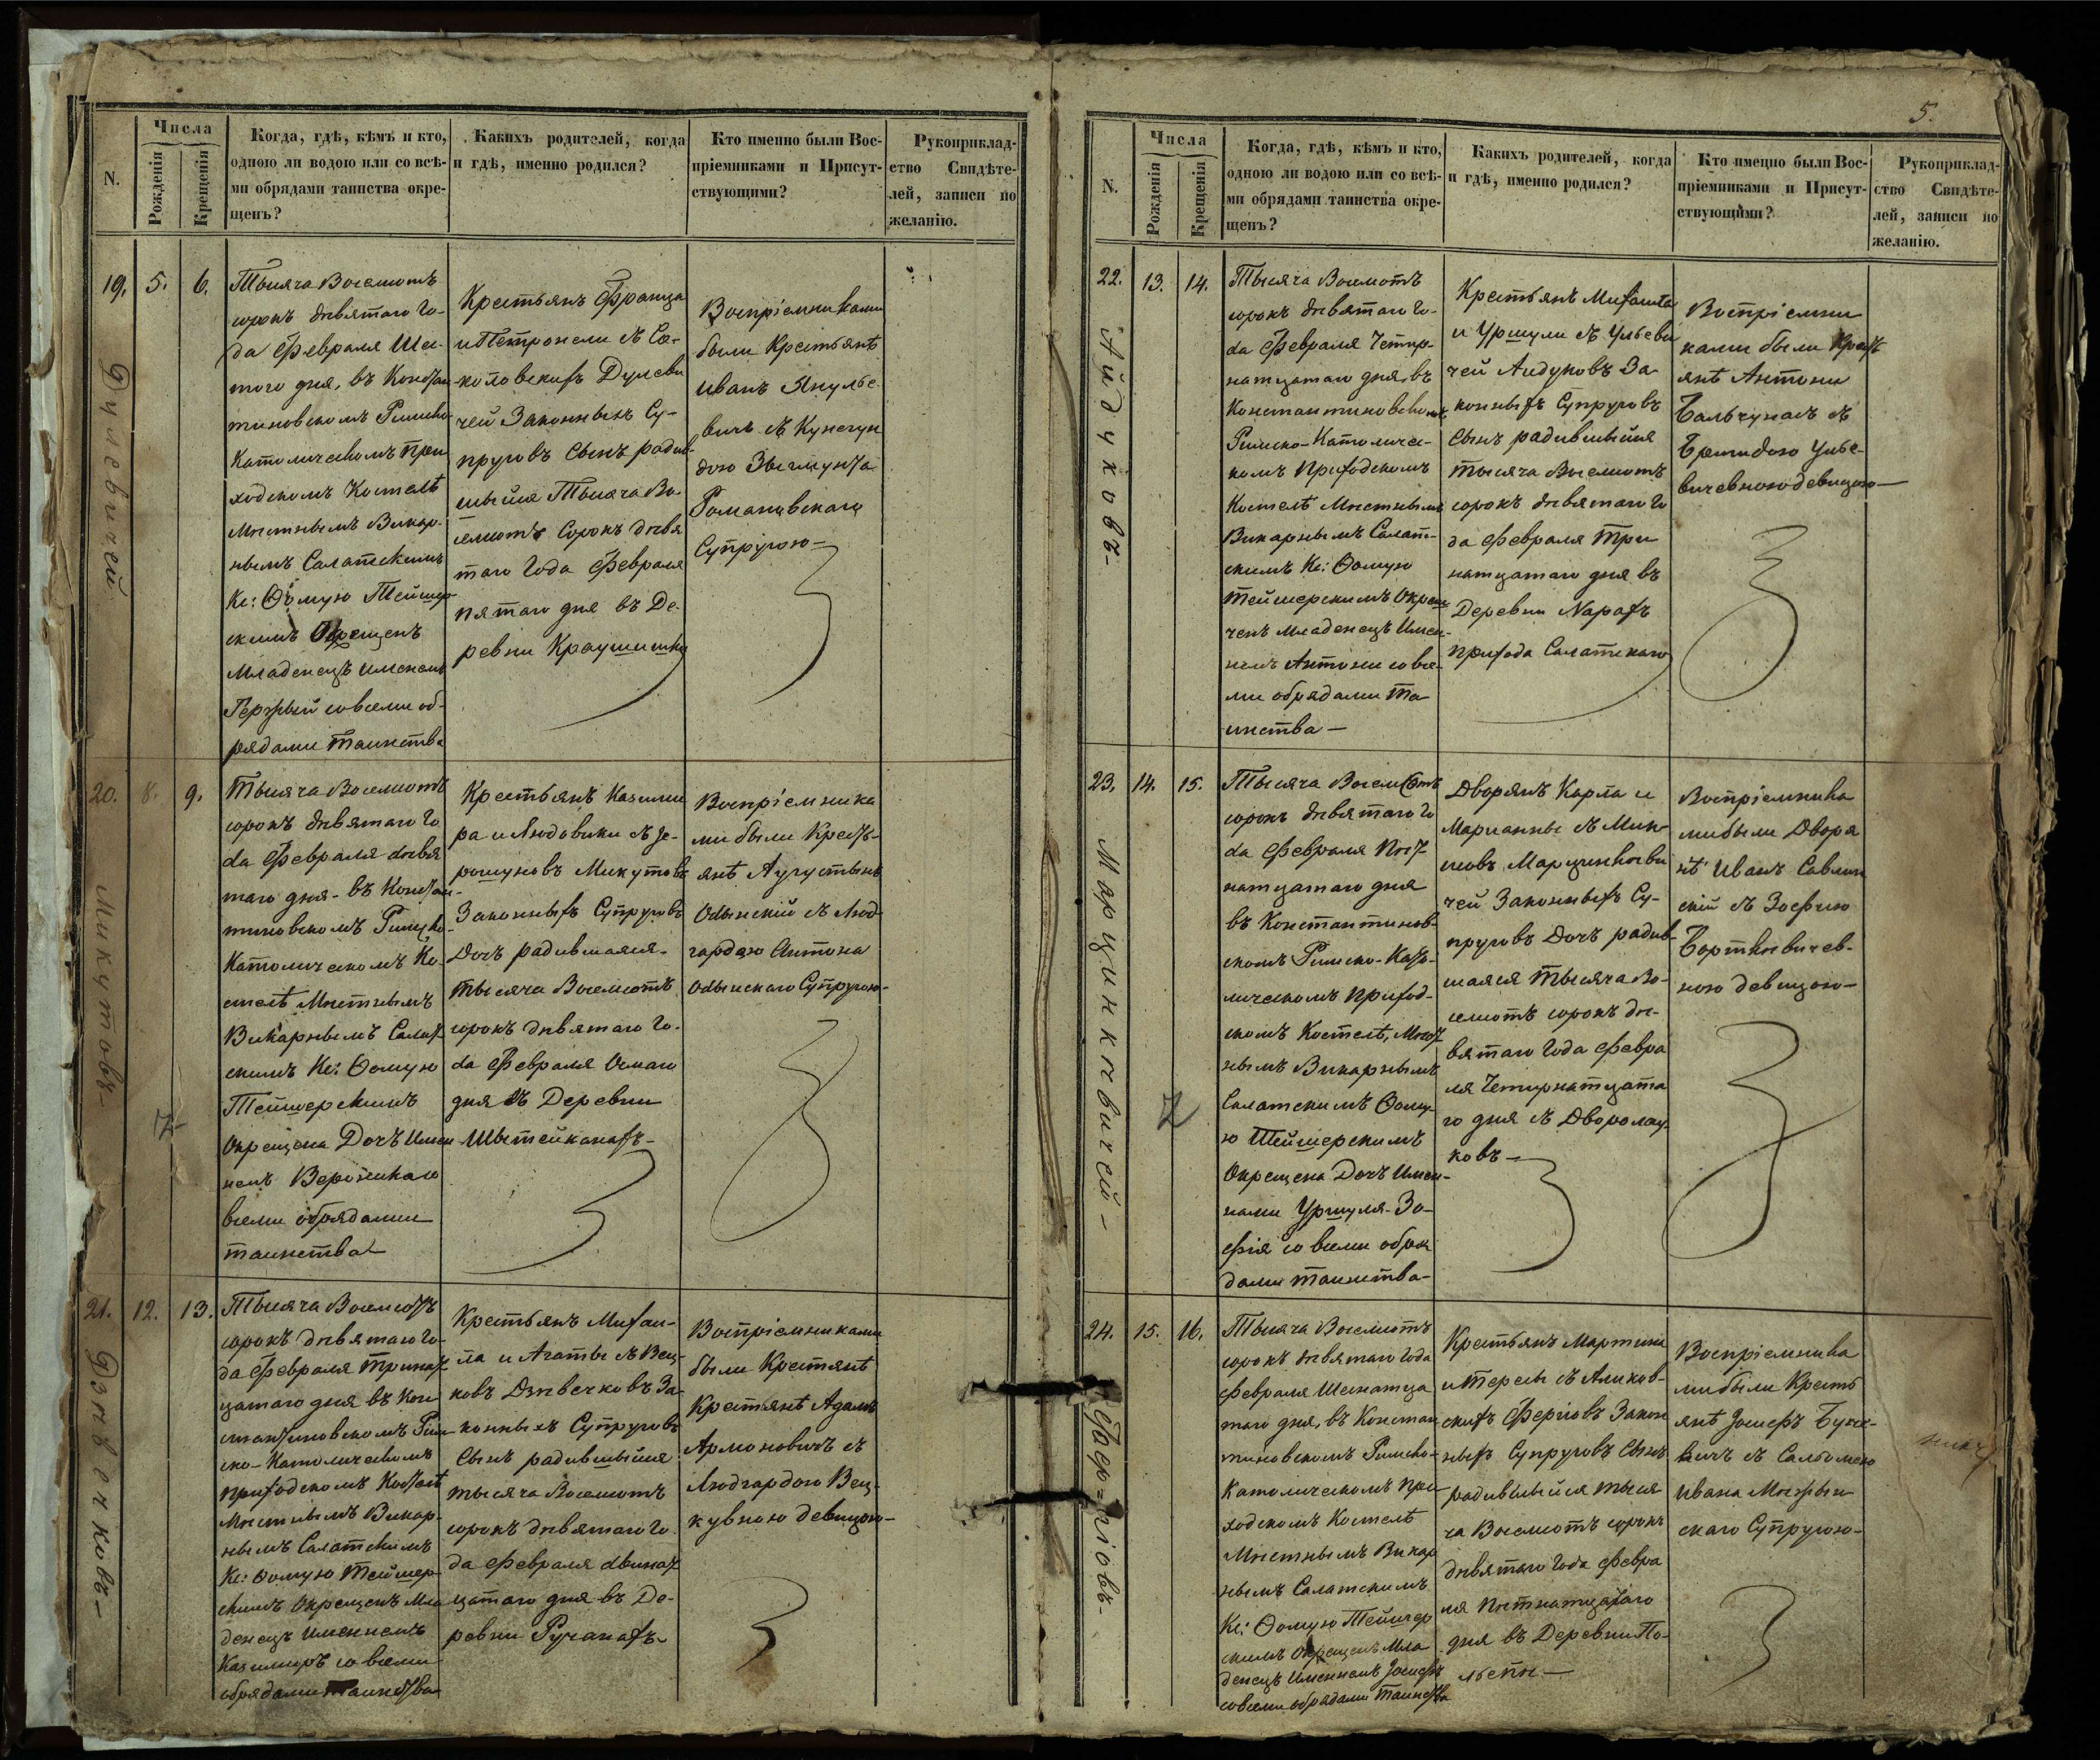 5.
N.
Числа
Рожденія
Крещенія
Когда, гдѣ, кѣмъ и кто,
одною ли водою или со всѣ-
ми обрядами таинства окре-
щенъ?
Какихъ родителей, когда
и гдѣ, именно родился?
Кто именно были Вос-
пріемниками и Присут-
ствующими?
Рукоприклад-
ство Свидѣте-
лей, записи по
желанію.
19. 5. 6.
Дулевичей
Тысяча Восемотъ
сорокъ девятаго Го-
да Февраля Шес-
того дня, въ Констан-
тиновскомъ Римско-
Католическомъ При
ходскомъ Костелѣ
Мѣстнымъ Викар-
нымъ Салатскимъ
Кс: Ѳомую Тейшер-
скимъ Окрещенъ
Младенецъ именемъ
совсеми об-
рядами таинства
Крестьянъ Франца
и Петронели съ Со-
коловскихъ Дулеви
чей Законныхъ Су-
пруговъ Сынъ радив-
шыйся Тысяча Во-
семотъ Сорокъ девя
таго Года Февраля
пятаго дня въ Де-
ревни Краушишки
Воспріемниками
были Крестьянѣ
Иванъ Янулѣ-
вичъ съ Кунегун
дою Звигмунта
Романовскаго
Супругою-
20. 8. 9.
Микутовъ-
Тысяча Восемотъ
сорокъ девятаго Го
да Февраля девя
таго дня- въ Констан-
тиновскомъ Римско-
Католическомъ Ко-
стелѣ Мѣстнымъ
Викарнымъ Салат
скимъ Кс: Ѳомую
Тейшерскимъ
Окрещена Дочъ Имен
немъ Вероникаю
всеми обрядами
таинства-
Крестьянъ Казими
ра и Людовики съ Ге-
рошуновъ Микутовъ
Законныхъ Супруговъ
Дочъ радившаяся-
тысяча Восемотъ
сорокъ девятаго Го-
да Февраля Осмаго
дня въ Деревни
Шытейканахъ-
Воспріемника
ми были Кресть-
янѣ Аугустынъ
Одынскій съ Люд-
гардою Антона
Одынскаго Супругою-
21. 12. 13.
Дзѣвенковъ-
Тысяча Восемотъ
сорокъ девятаго Го-
да Февраля Тринат
цатаго дня въ Кон
стантиновскомъ Рим
ско-Католическомъ
Приходскомъ Костелѣ
Мѣстнымъ Викар-
нымъ Салатскимъ
Кс: Ѳомую Тейшер-
скимъ Окрещенъ Мла
денецъ Именнемъ
Казимиръ со всеми
обрядами таинства
Крестьянъ Михаи-
ла и Агаты съ Вец-
ковъ Дзѣвечковъ За-
конныхъ Супруговъ
Сынъ радившыйся
тысяча Восемотъ
сорокъ девятаго Го-
да Февраля двинат
цатаго дня въ Де-
ревни Ручанахъ
Воспріемниками
были Крестянѣ
Крестянѣ Адамъ
Армоновичъ съ
Людгардою Вец-
кувною девицою-
N.
Числа
Рожденія
Крещенія
Когда, гдѣ, кѣмъ и кто,
одною ли водою или со всѣ-
ми обрядами таинства окре-
щенъ?
Какихъ родителей, когда
и гдѣ, именно родился?
Кто имецно были Вос-
пріемниками и Присут-
ствующими?
Рукоприклад-
ство Свидѣте-
лей, записи по
желанію.
22. 13. 14.
Айдуковъ-
Тысяча Восемотъ
сорокъ девятаго Го-
да Февраля Четыр-
натцатаго дня, въ
Константиновскомъ
Римско-Католичес-
комъ Приходскомъ
Костелѣ Мѣстнымъ
Викарнымъ Салат-
скимъ Кс: Ѳомую
Тейшерскимъ Окрещ
ченъ младенецъ Имен-
немъ Антони со все-
ми обрядами Та-
инства-
Крестьянъ Михаила
и Уршули съ Ульеви
чей Аидуковъ За
конныхъ Супруговъ
Сынъ радившыйся
тысяча Восемотъ
сорокъ девятаго Го
да Февраля Три
натцатаго дня въ
Деревни Нарахъ
Прихода Салатскаго
Воспріемни
ками были Крест
янѣ Антони
Бальчунасъ съ
Бригидою Улье-
вичевною девицою-
23. 14. 15.
Марцинкевичей-
Тысяча Восемсотъ
сорокъ девятаго Го
да Февраля Пят
натцатаго дня
въ Константинов-
скомъ Римско-Като-
лическомъ Приход-
скомъ Костелѣ, Мѣст
нымъ Викарнымъ
Салатскимъ Ѳому-
ю Тейшерскимъ
Окрещена Дочъ Имен-
нами Уршуля-Зо-
фія со всеми обря
дами таинства-
Дворянъ Карла и
Марианны съ Мик-
шовъ Марцинкѣви
чей Законныхъ Су-
пруговъ Дочъ радив-
шаяся тысяча Во-
семотъ сорокъ де-
вятаго Года Февра
ля Четырнатцата
го дня съ Двора
ковъ-
Воспріемника
ми были Дворя
нѣ Иванъ
скій съ Зофию
Борткѣвичев-
ною девицою-
24. 15. 16.
Тысяча Восемотъ
сорокъ девятаго Года
Февраля Шеснатца
таго дня, въ Констан
тиновскомъ Римско-
Католическомъ При
ходскомъ Костелѣ
Мѣстнымъ Викар
нымъ Салатскимъ
Кс: Ѳомую Тейшер
скимъ Окрещенъ Мла
денецъ Именнемъ Іосифъ
совсеми обрядами Таинства
Крестьянъ Мартина
и Тересы съ Аликов-
скихъ Законн
ныхъ Супруговъ Сынъ
радившыйся тыся
ча Восемотъ сорокъ
девятаго Года Февра
ля Пятнатцатаго
дня въ Деревни По-
Воспріемника
ми были Кресть
янѣ Іосифъ Буке-
вичъ съ Сальомею
Ивана
скаго Супругою-